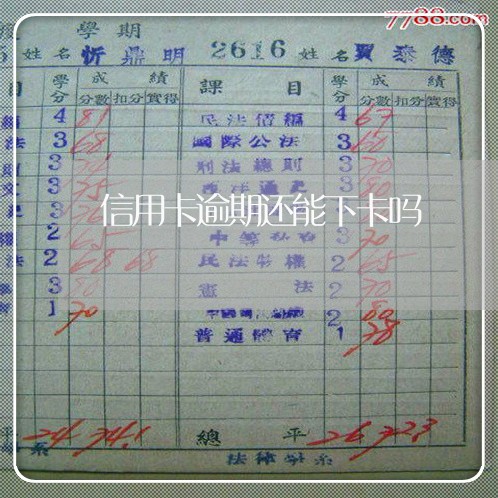 7788.com
學期
5 姓名 忻鼎明 2616 姓名 賈泰德
目 學分 成績 課目 學分 成績
分數 扣分 實得 分數 扣分 實得
4 81 民法債編 4 67
法 3 68 國際公法 3 60
3 刑法總則 3 70
3 75 3 80
信用卡逾期还能下卡吗
2 65 3 70
法 2 68 68 民法物權 2 65
3 80 憲法 2 70
1 70 2 80
普通體育 1 78
平 24 74.1 總平 26 72.3
系 法律學系